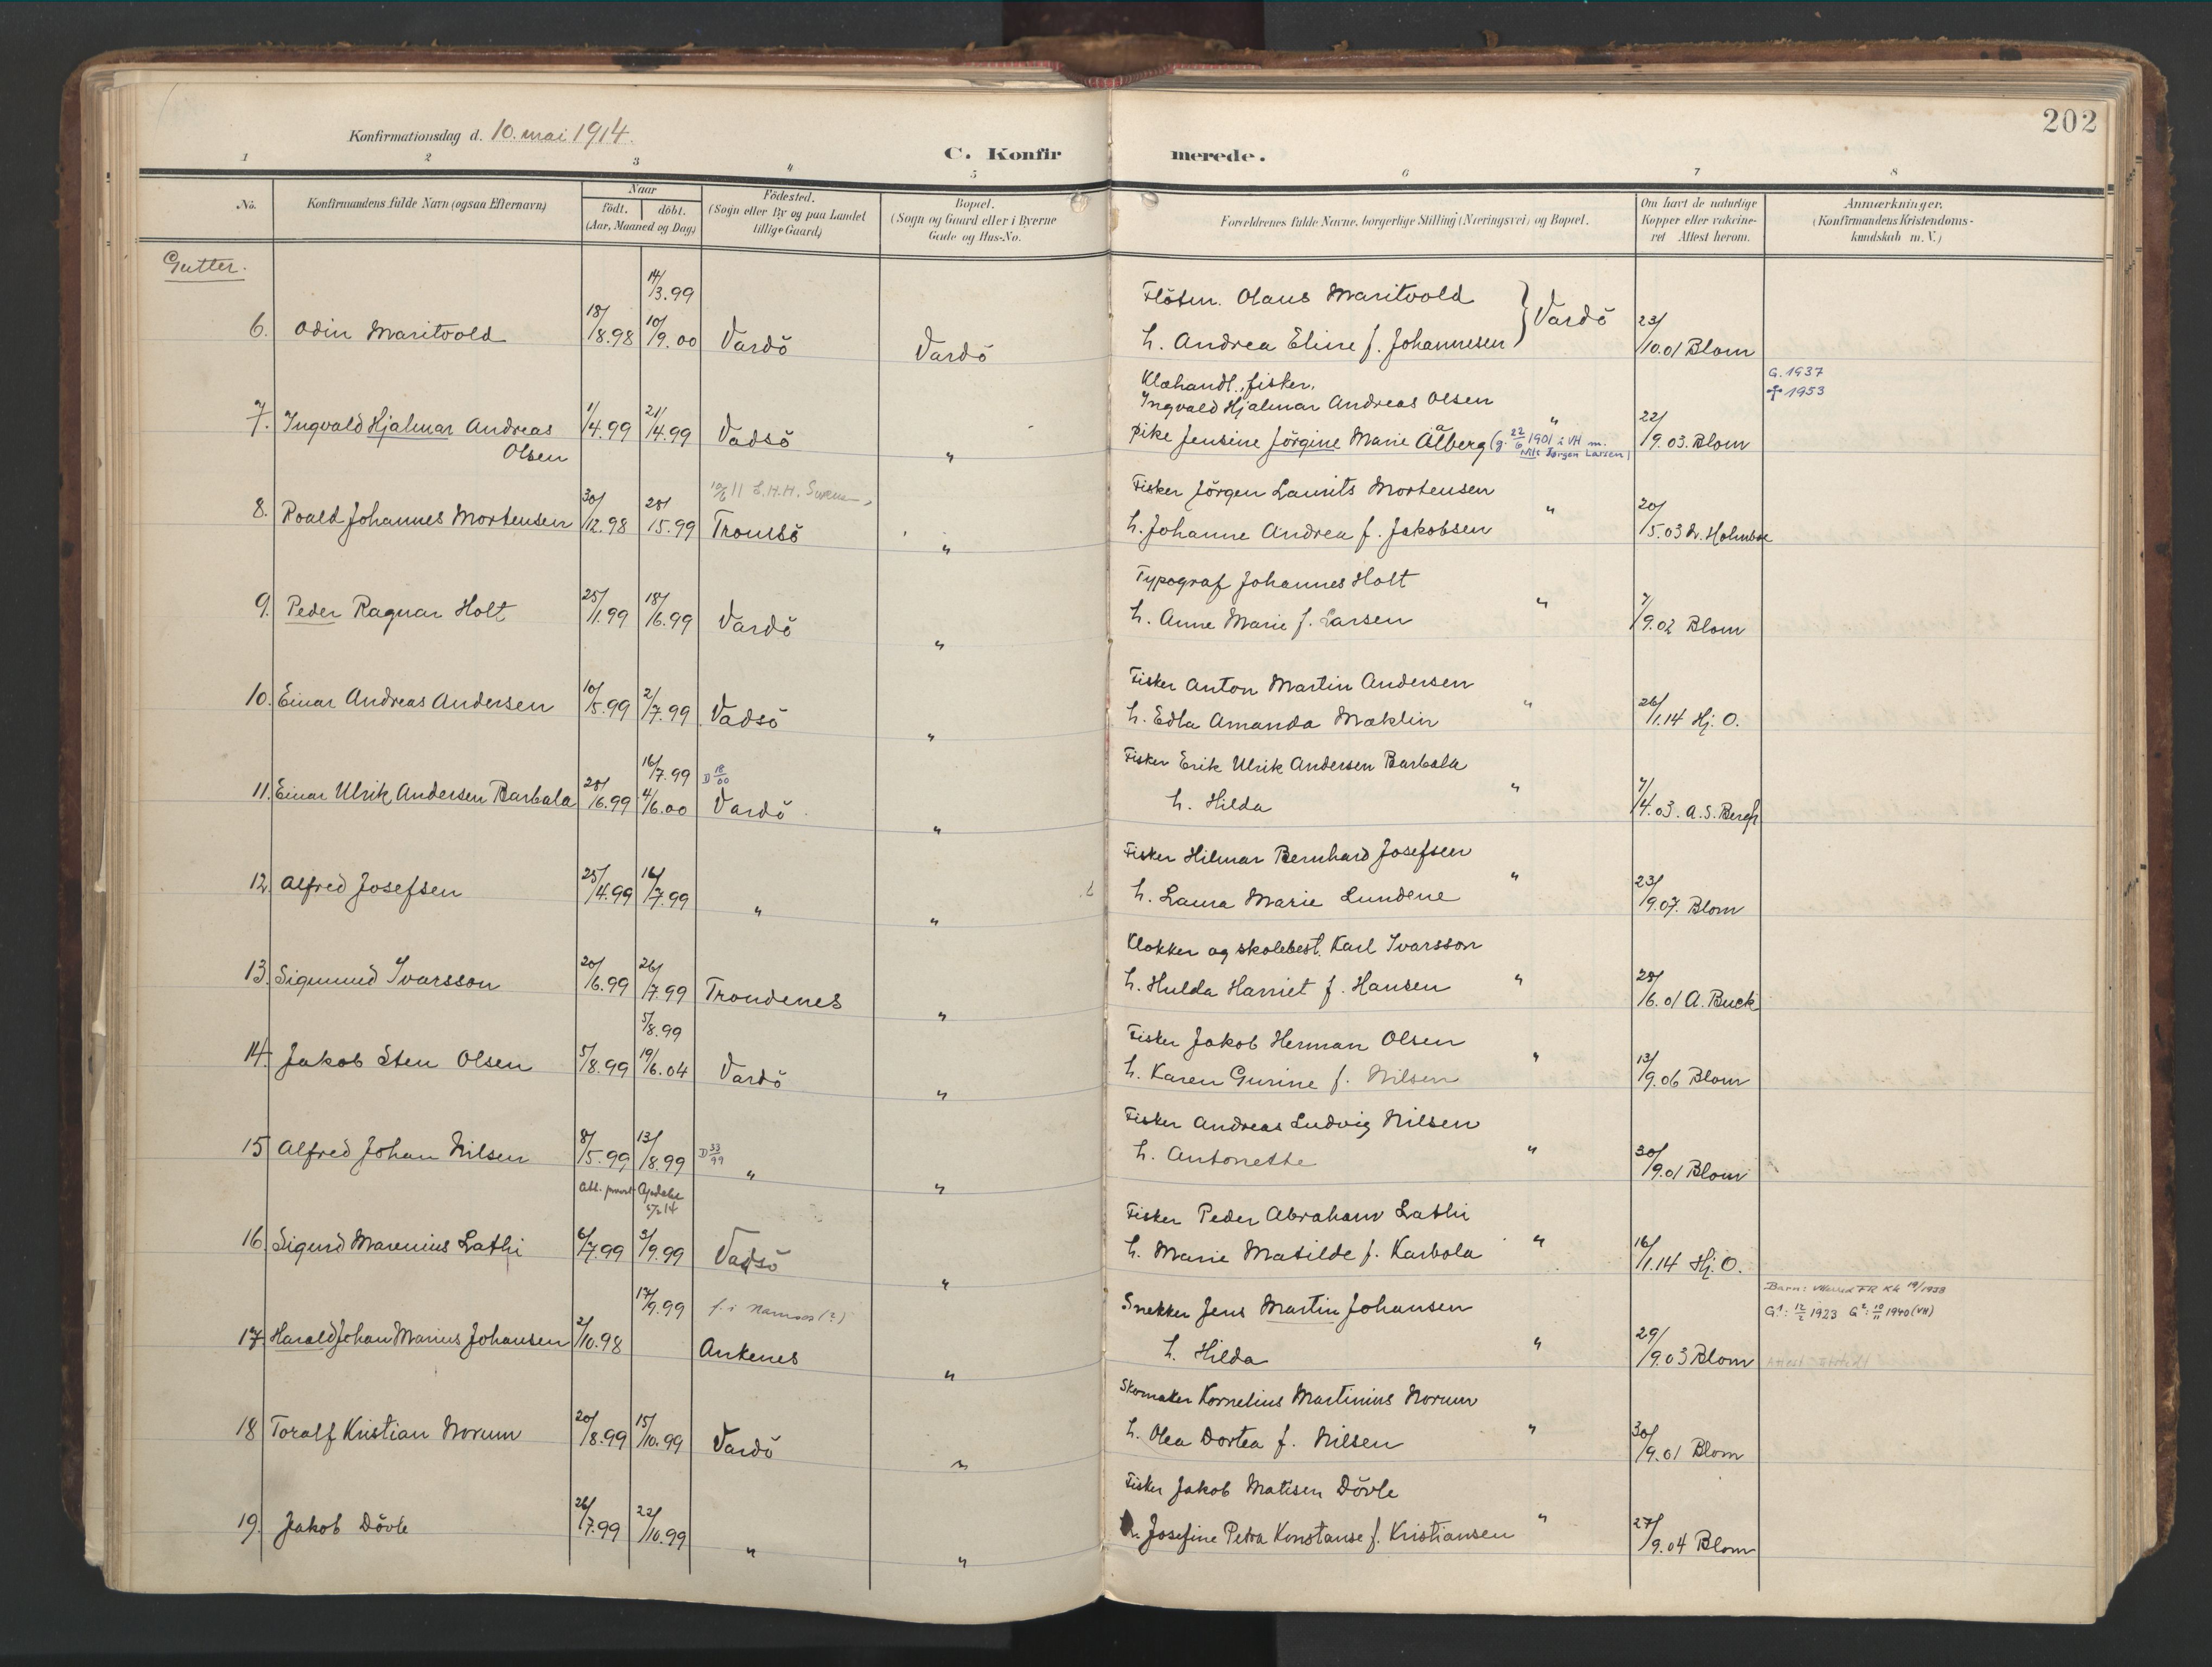 202
Konfirmationsdag d. 10. mai 1914.
C. Konfirmerede.
1 2 3 4 5 6 7 8
No.
Konfirmandens fulde Navn (ogsaa Efternavn)
Naar
födt. döbt.
(Aar, Maaned og Dag)
Födested.
(Sogn eller By og paa Landet
tillige Gaard)
Bopæl.
(Sogn og Gaard eller i Byerne
Gade og Hus-No.
Forældrenes fulde Navne, borgerlige Stilling (Næringsvei) og Bopæl.
Om havt de naturlige
Kopper eller vakcine-
ret Attest herom.
Anmærkninger.
(Konfirmandens Kristendoms-
kundskab m. V.)
Gutter.
14/3.99
Olaus Maritvold } Vardö
6. Odin Maritvold 18/8.98 10/9.00 Vardö Vardö
h. Andrea Eline f. Johannesen 23/10.01 Blom
G. 1937
✝ 1953
Klæhandl., fisker,
Ingvald Hjalmar Andreas Olsen "
7. Ingvald Hjalmar Andreas 1/4.99 21/4.99 Vadsö "
Olsen
pike Jensine Jörgine Marie Ålberg (g. 22/6 1901 i VH m.
Nils Jørgen Larsen) 22/9.03. Blom
Fisker Jörgen Laurits Mortensen "
8. Roald Johannes Mortensen 30/12.98 28/5.99 Tromsö "
h. Johanne Andrea f. Jakobsen 20/5.03 Holmboe
Typograf Johannes Holt "
9. Peder Ragnar Holt 25/1.99 18/6.99 Vardö "
h. Anne Marie f. Larsen 7/9.02 Blom
Fisker Anton Martin Andersen "
10. Einar Andreas Andersen 10/5.99 2/7.99 Vadsö "
h. Edla Amanda Mæklin 26/1.14 Hj. O.
16/7.99 D 18/00
Fisker Erik Ulrik Andersen Barbala "
11. Einar Ulrik Andersen Barbala 28/6.99 4/6.00 Vardö "
h. Hilda 7/4.03. A. S. Bergh
Fisker Hilmar Bernhard Josefsen "
12. Alfred Josefsen 25/4.99 16/7.99 " "
h. Laura Marie Lundene 23/9.07. Blom
Klokker og skolebest. Karl Ivarsson
13. Sigmund Ivarsson 20/6.99 26/7.99 Trondenes "
h. Hulda Harriet f. Hansen " 28/6.01 A. Buck
5/8.99
Fisker Jakob Herman Olsen "
14. Jakob Sten Olsen 5/8.99 19/6.04 Vardö "
h. Karen Gurine f. Nilsen 13/9.06 Blom
Fisker Andreas Ludvig Nilsen "
15 Alfred Johan Nilsen 8/5.99 13/8.99 D 33/99 " "
h. Antonette 30/9.01 Blom
Fisker Peder Abraham Lathi "
16. Sigurd Marenius Lathi 6/7.99 3/9.99 Vadsö "
h. Marie Matilde f. Karbola 16/1.14 Hj. O.
17/9.99 f. i Namsos (?)
19/1938
G¹: 12/2 1923 G²: 10/11 1940 (VH)
Snekker Jens Martin Johansen
17. Harald Johan Marius Johansen 2/10.98 Ankenes "
h. Hilda " 29/9.03 Blom
Skomaker Kornelius Martinius Norum
18 Toralf Kristian Norum 20/8.99 15/10.99 Vardö "
h. Olea Dortea f. Nilsen " 30/9.01 Blom
Fisker Jakob Matisen Dövle
19. Jakob Dövle 26/7.99 22/10.99 " "
h. Josefine Petra Konstanse f. Kristiansen " 27/9.04 Blom